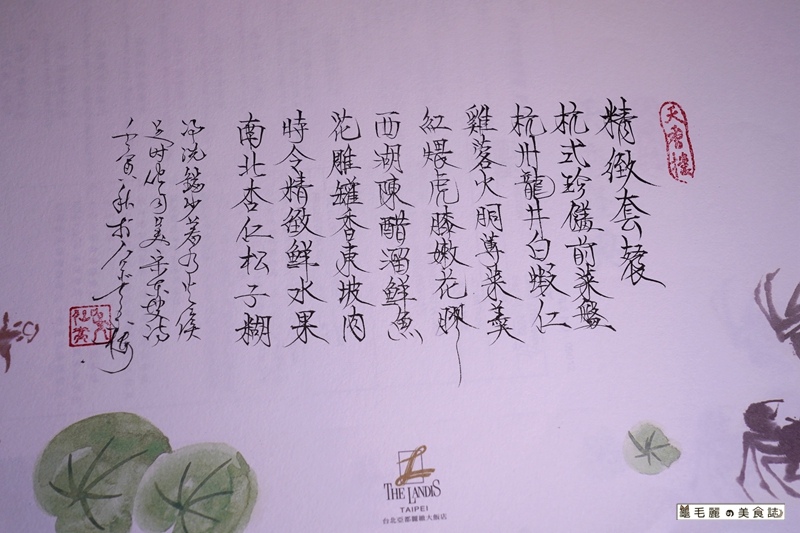 天香樓
精緻套餐
杭式珍饈前菜盤
杭州龍井白蝦仁
雞蓉火胴蓴菜羹
紅煨虎膝嫩花膠
西湖陳醋溜鮮魚
花雕罐香東坡肉
時令精緻鮮水果
南北杏仁松子糊
THE LANDIS
TAIPEI
台北亞都麗緻大飯店
毛麗の美食誌